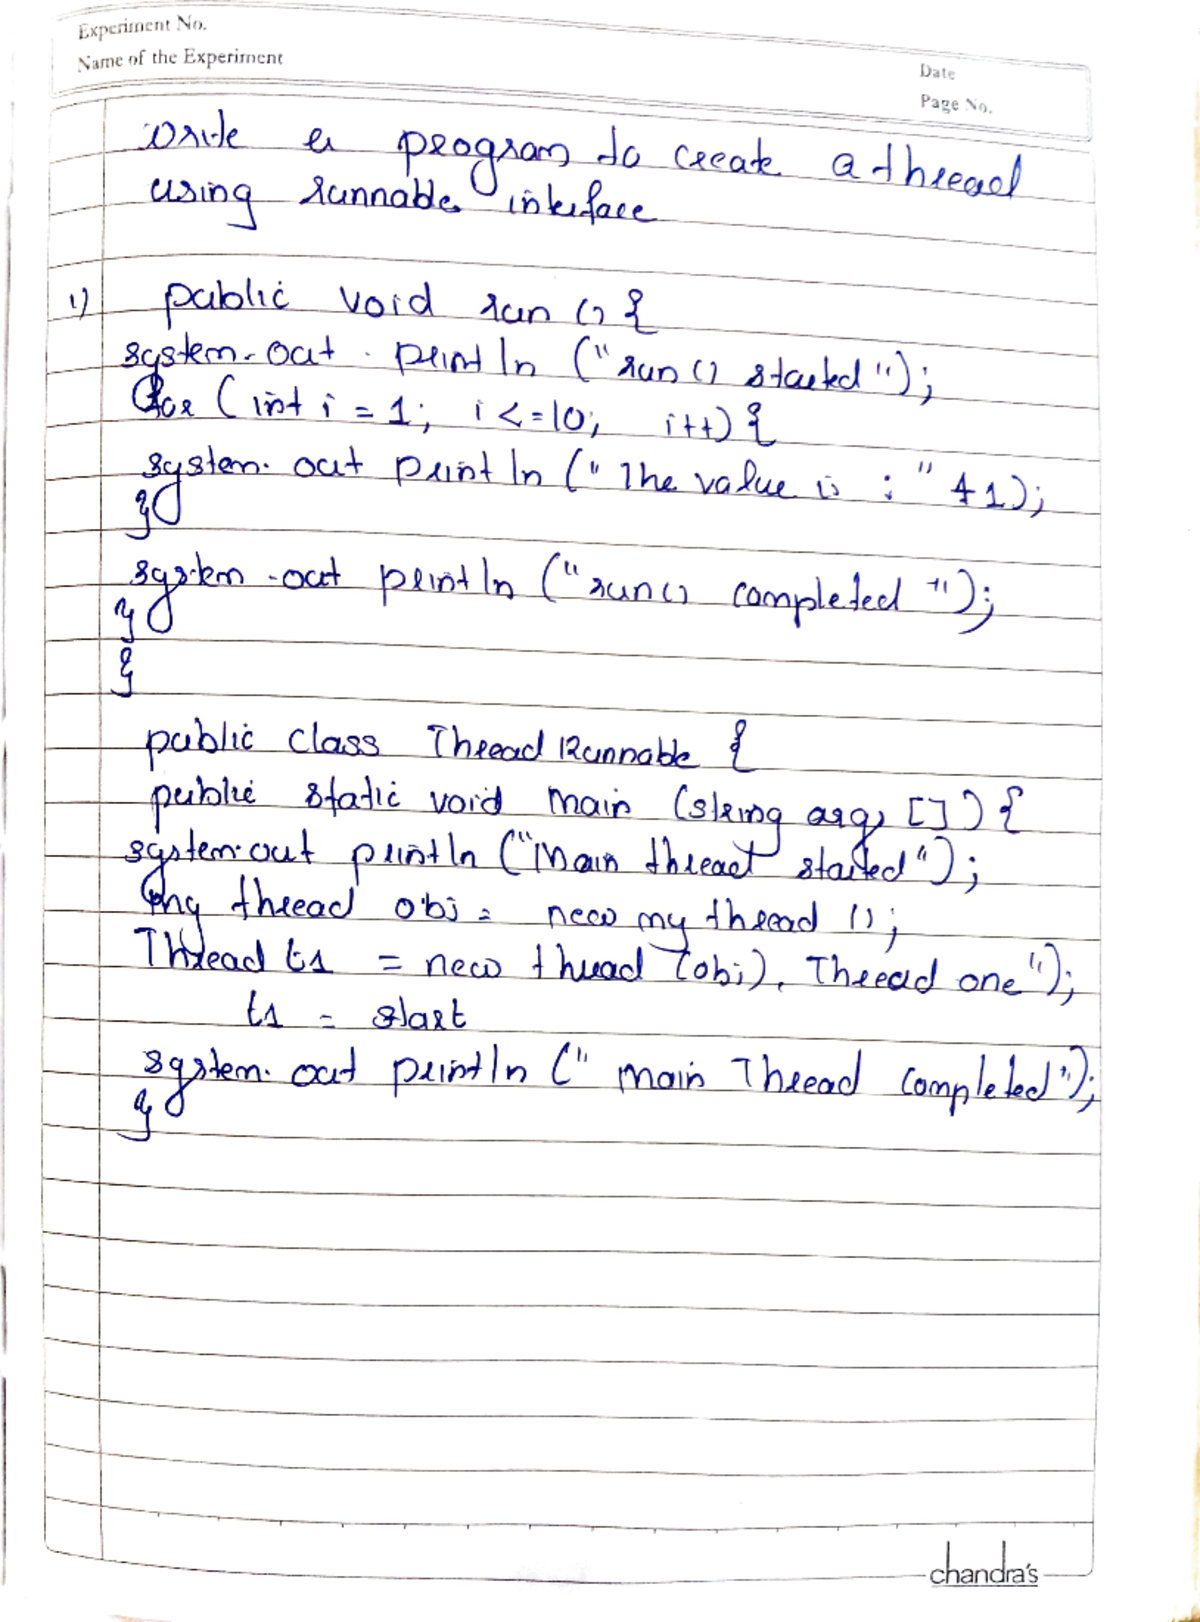 Experiment No.
Name of the Experiment
Date
Page No.
write a program to create a thread
using runnable interface
1) public void run () {
system. out . println (" run () started ");
for ( int i = 1; i <= 10; i++) {
system. out println (" The value is : " + 1);
}
system .out println (" run () completed ");
}
}
public class Thread Runnable {
public static void main (string args []) {
system.out println ("Main thread started");
my thread obj = new my thread ();
Thread t1 = new thread (obj), Thread one");
t1 = start
system. out println (" main Thread completed");
}
chandra's